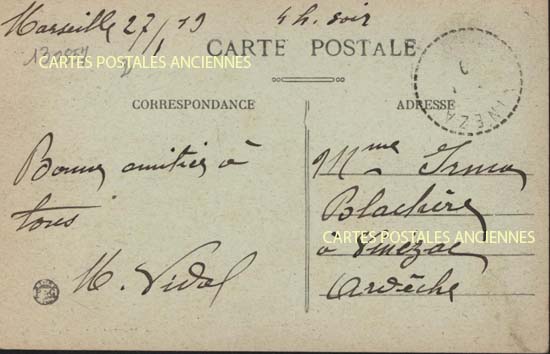 Marseille 27/1 19 4 h. soir
CARTE POSTALE
CARTES POSTALES ANCIENNES
CORRESPONDANCE
ADRESSE
VINEZA
Bonnes amitiés à
tous
M. Vidal
Mme Irma
Blachère
à Vinezac
Ardèche
CARTES POSTALES ANCIENNES